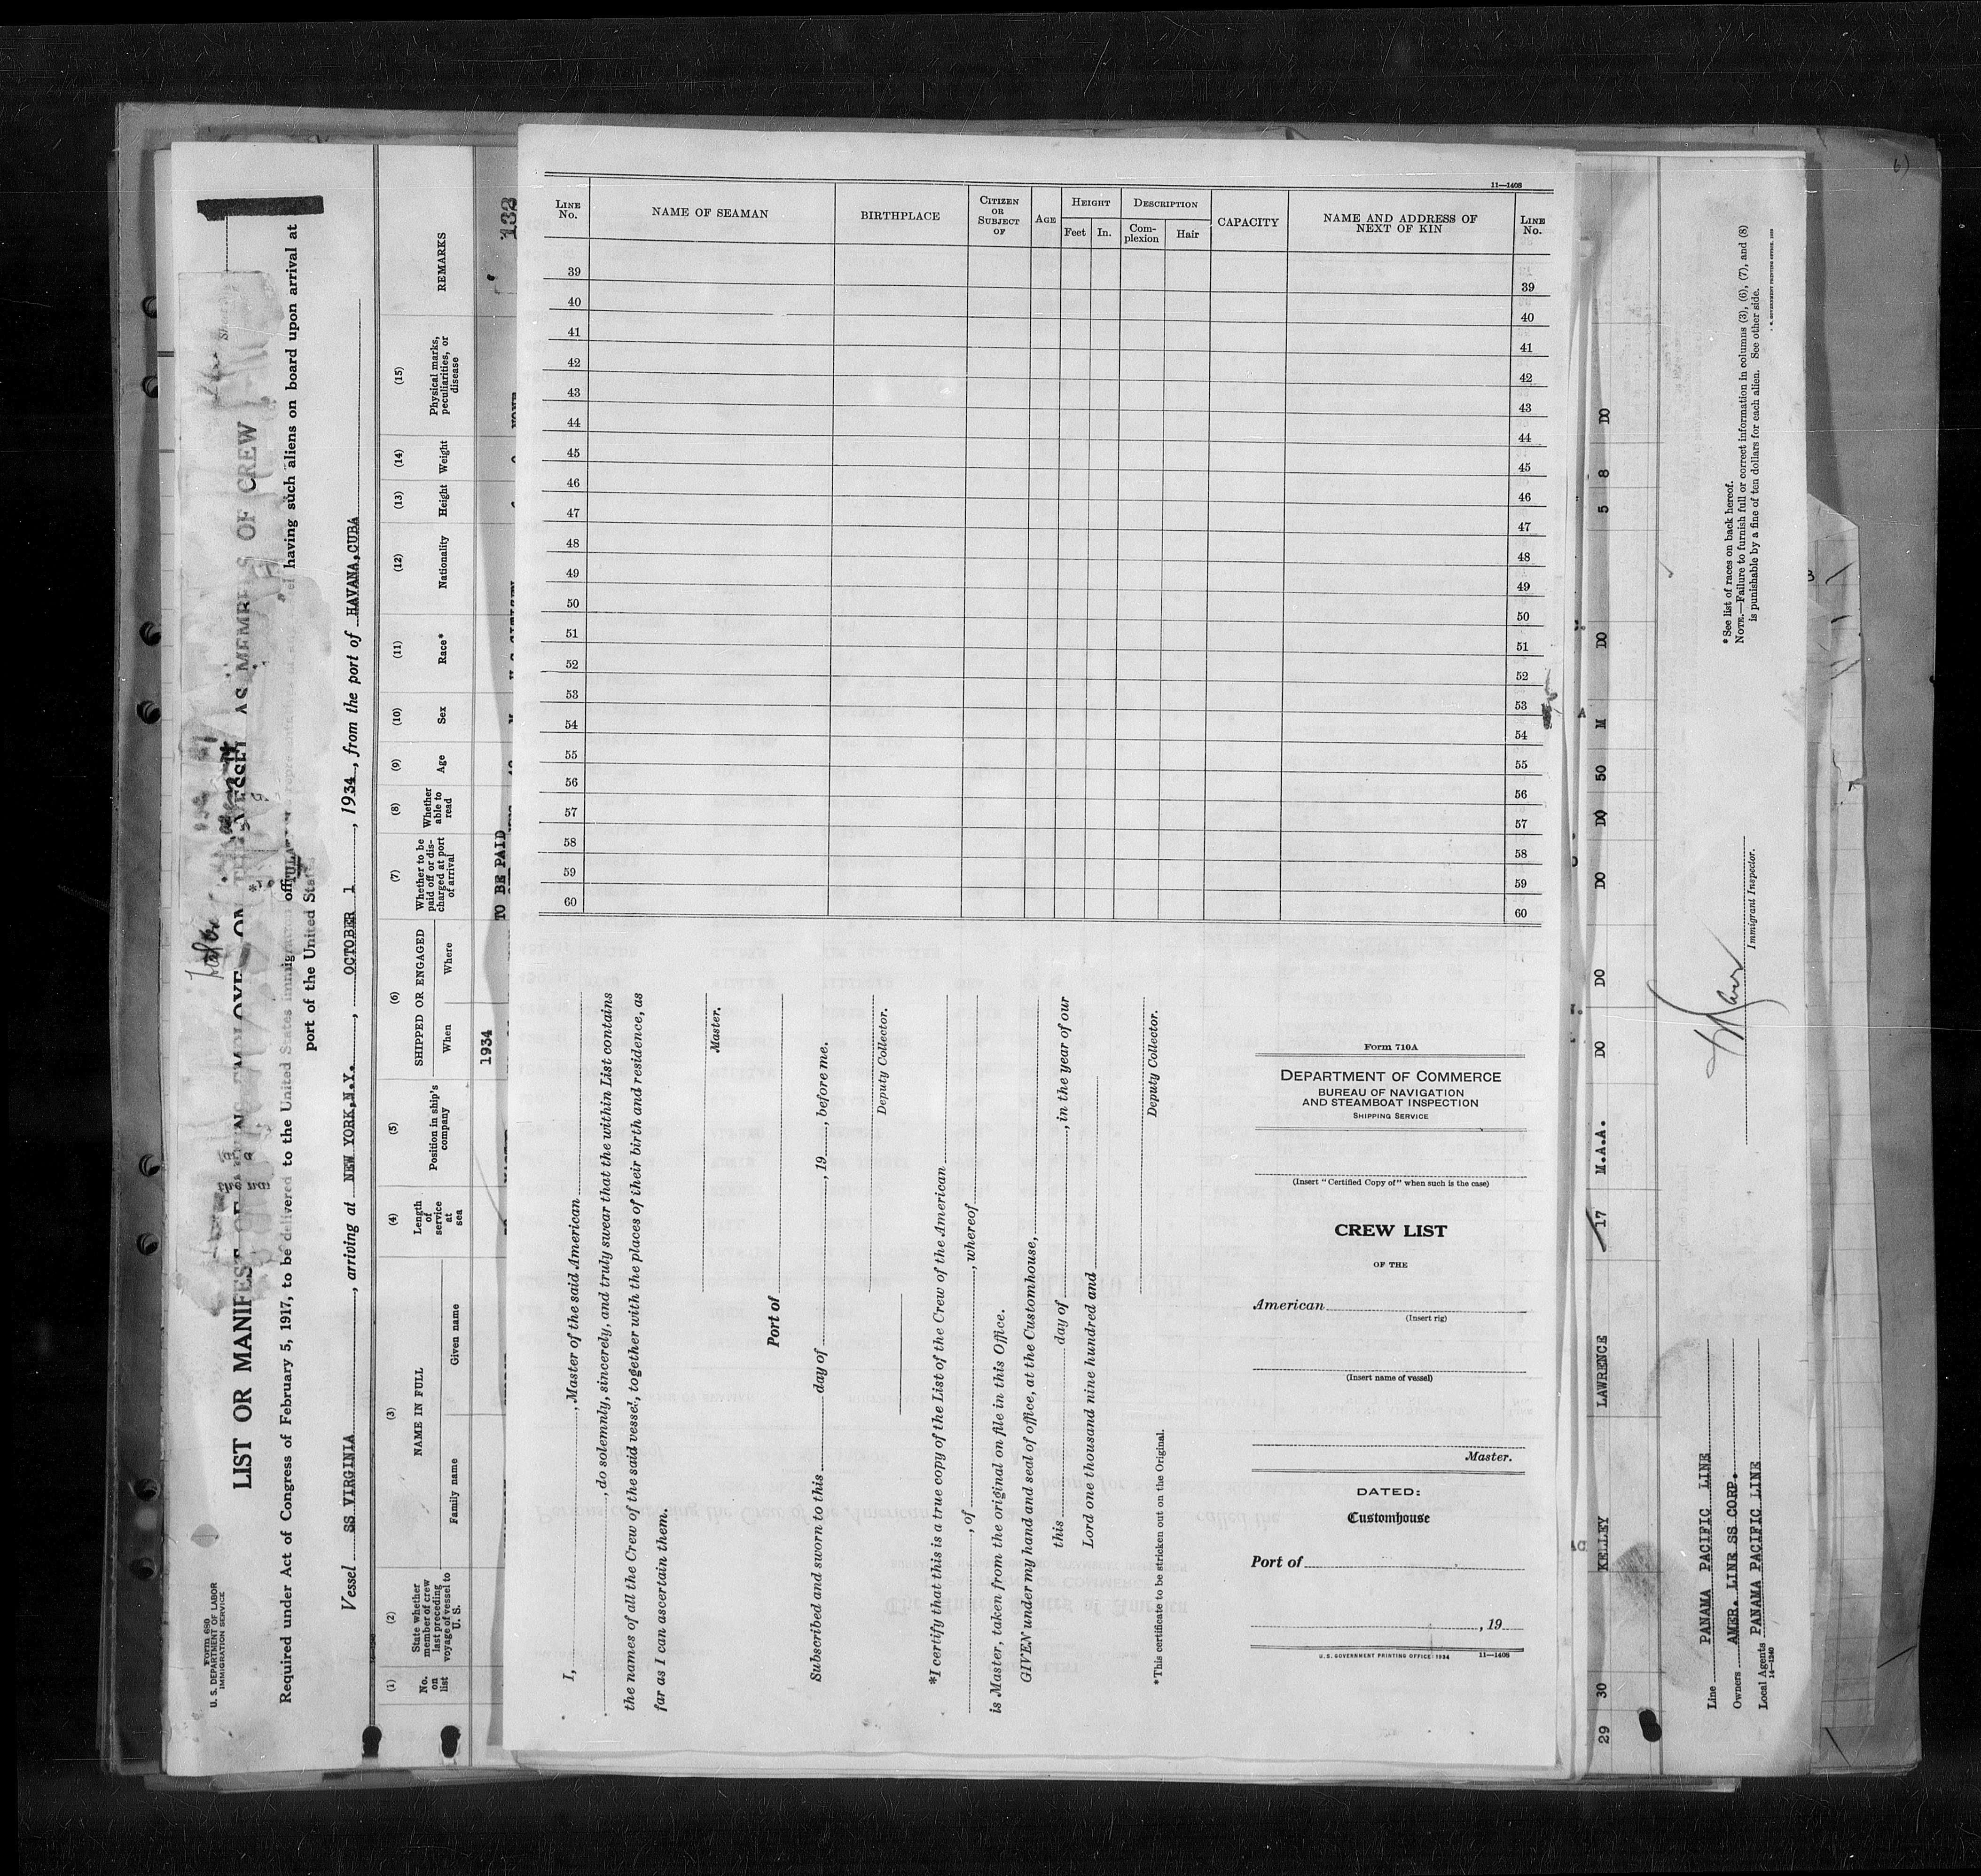 Form 680
U. S. DEPARTMENT OF LABOR
IMMIGRATION SERVICE
LIST OR MANIFEST OF AS MEMBERS OF CREW
Required under Act of Congress of February 5, 1917, to be delivered to the United States immigration having such aliens on board upon arrival at
port of the United
Vessel SS VIRGINIA, arriving at NEW YORK,N.Y., OCTOBER 1, 1934, from the port of HAVANA,CUBA
(1)
No. on list
(2)
State whether member of crew last preceding voyage of vessel to U. S.
(3)
NAME IN FULL
Family name
Given name
(4)
Length of service at sea
(5)
Position in ship's company
(6)
SHIPPED OR ENGAGED
When
Where
(7)
Whether to be paid off or discharged at port of arrival
(8)
Whether able to read
(9)
Age
(10)
Sex
(11)
Race*
(12)
Nationality
(13)
Height
(14)
Weight
(15)
Physical marks, peculiarities, or disease
REMARKS
1934
TO BE PAID
132
11—1408
LINE No.
NAME OF SEAMAN
BIRTHPLACE
CITIZEN OR SUBJECT OF
AGE
HEIGHT
Feet
In.
DESCRIPTION
Com-plexion
Hair
CAPACITY
NAME AND ADDRESS OF NEXT OF KIN
LINE No.
39 39
40 40
41 41
42 42
43 43
44 44
45 45
46 46
47 47
48 48
49 49
50 50
51 51
52 52
53 53
54 54
55 55
56 56
57 57
58 58
59 59
60 60
I, , Master of the said American
, do solemnly, sincerely, and truly swear that the within List contains
the names of all the Crew of the said vessel, together with the places of their birth and residence, as
far as I can ascertain them.
Master.
Port of
Subscribed and sworn to this day of , 19 , before me.
Deputy Collector.
*I certify that this is a true copy of the List of the Crew of the American
, of , whereof
is Master, taken from the original on file in this Office.
GIVEN under my hand and seal of office, at the Customhouse,
this day of , in the year of our
Lord one thousand nine hundred and
Deputy Collector.
*This certificate to be stricken out on the Original.
Form 710A
DEPARTMENT OF COMMERCE
BUREAU OF NAVIGATION
AND STEAMBOAT INSPECTION
SHIPPING SERVICE
(Insert "Certified Copy of" when such is the case)
CREW LIST
OF THE
American
(Insert rig)
(Insert name of vessel)
Master.
DATED:
Customhouse
Port of
, 19
U.S. GOVERNMENT PRINTING OFFICE: 1934 11—1408
29 30 KELLEY LAWRENCE 17 M.A.A. DO DO DO DO 50 M DO 5 8 DO
Line PANAMA PACIFIC LINE
Owners AMER. LINE SS CORP.
Local Agents PANAMA PACIFIC LINE
14—1240
Immigrant Inspector.
*See list of races on back hereof.
NOTE.—Failure to furnish full or correct information in columns (3), (6), (7), and (8)
is punishable by a fine of ten dollars for each alien. See other side.